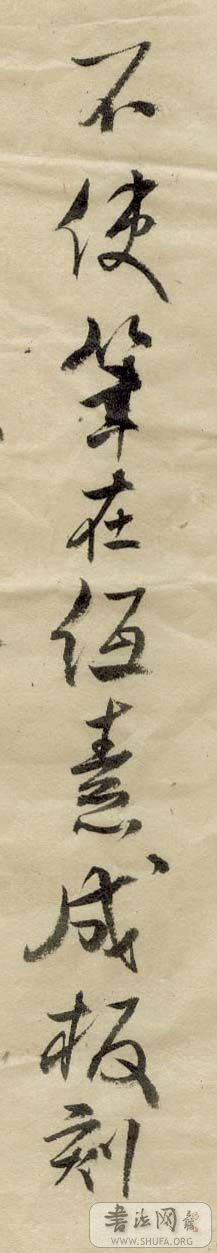 不使筆在伍意成板刻
書法网
WWW.SHUFA.ORG